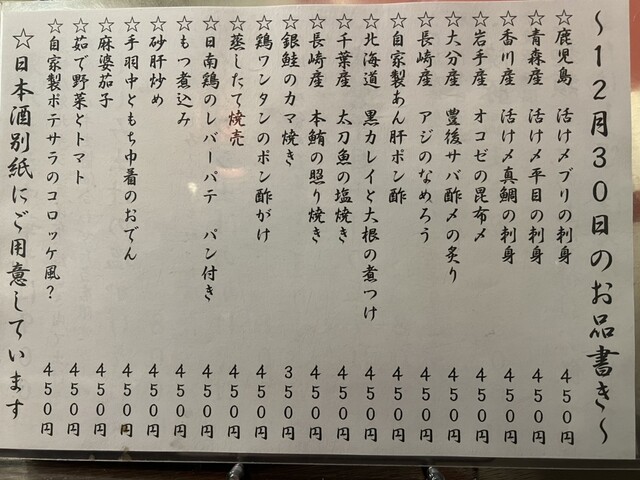 ～12月30日のお品書き～
☆鹿児島　活け〆ブリの刺身　450円
☆青森産　活け〆平目の刺身　450円
☆香川産　活け〆真鯛の刺身　450円
☆岩手産　オコゼの昆布〆　450円
☆大分産　豊後サバ酢〆の炙り　450円
☆長崎産　アジのなめろう　450円
☆自家製あん肝ポン酢　450円
☆北海道　黒カレイと大根の煮つけ　450円
☆千葉産　太刀魚の塩焼き　450円
☆長崎産　本鮪の照り焼き　450円
☆銀鮭のカマ焼き　350円
☆鶏ワンタンのポン酢がけ　450円
☆蒸したて焼売　450円
☆日南鶏のレバーパテ　パン付き　450円
☆もつ煮込み　450円
☆砂肝炒め　450円
☆手羽中ともち巾着のおでん　450円
☆麻婆茄子　450円
☆茹で野菜とトマト　450円
☆自家製ポテサラのコロッケ風？　450円
☆日本酒別紙にご用意しています